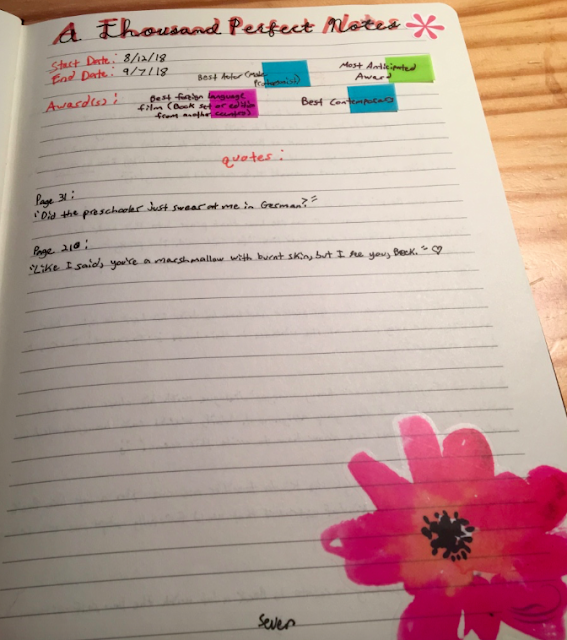 A Thousand Perfect Notes
Start Date: 8/12/18
End Date: 9/7/18
Award(s):
Best Actor (male
Protagonist)
Most Anticipated
Award
Best foreign language
film (Book set or edition
from another country)
Best Contemporary
quotes:
Page 31:
"Did the preschooler just swear at me in German?"
Page 210:
"Like I said, you're a marshmallow with burnt skin, but I see you, Beck." ♡
Seven